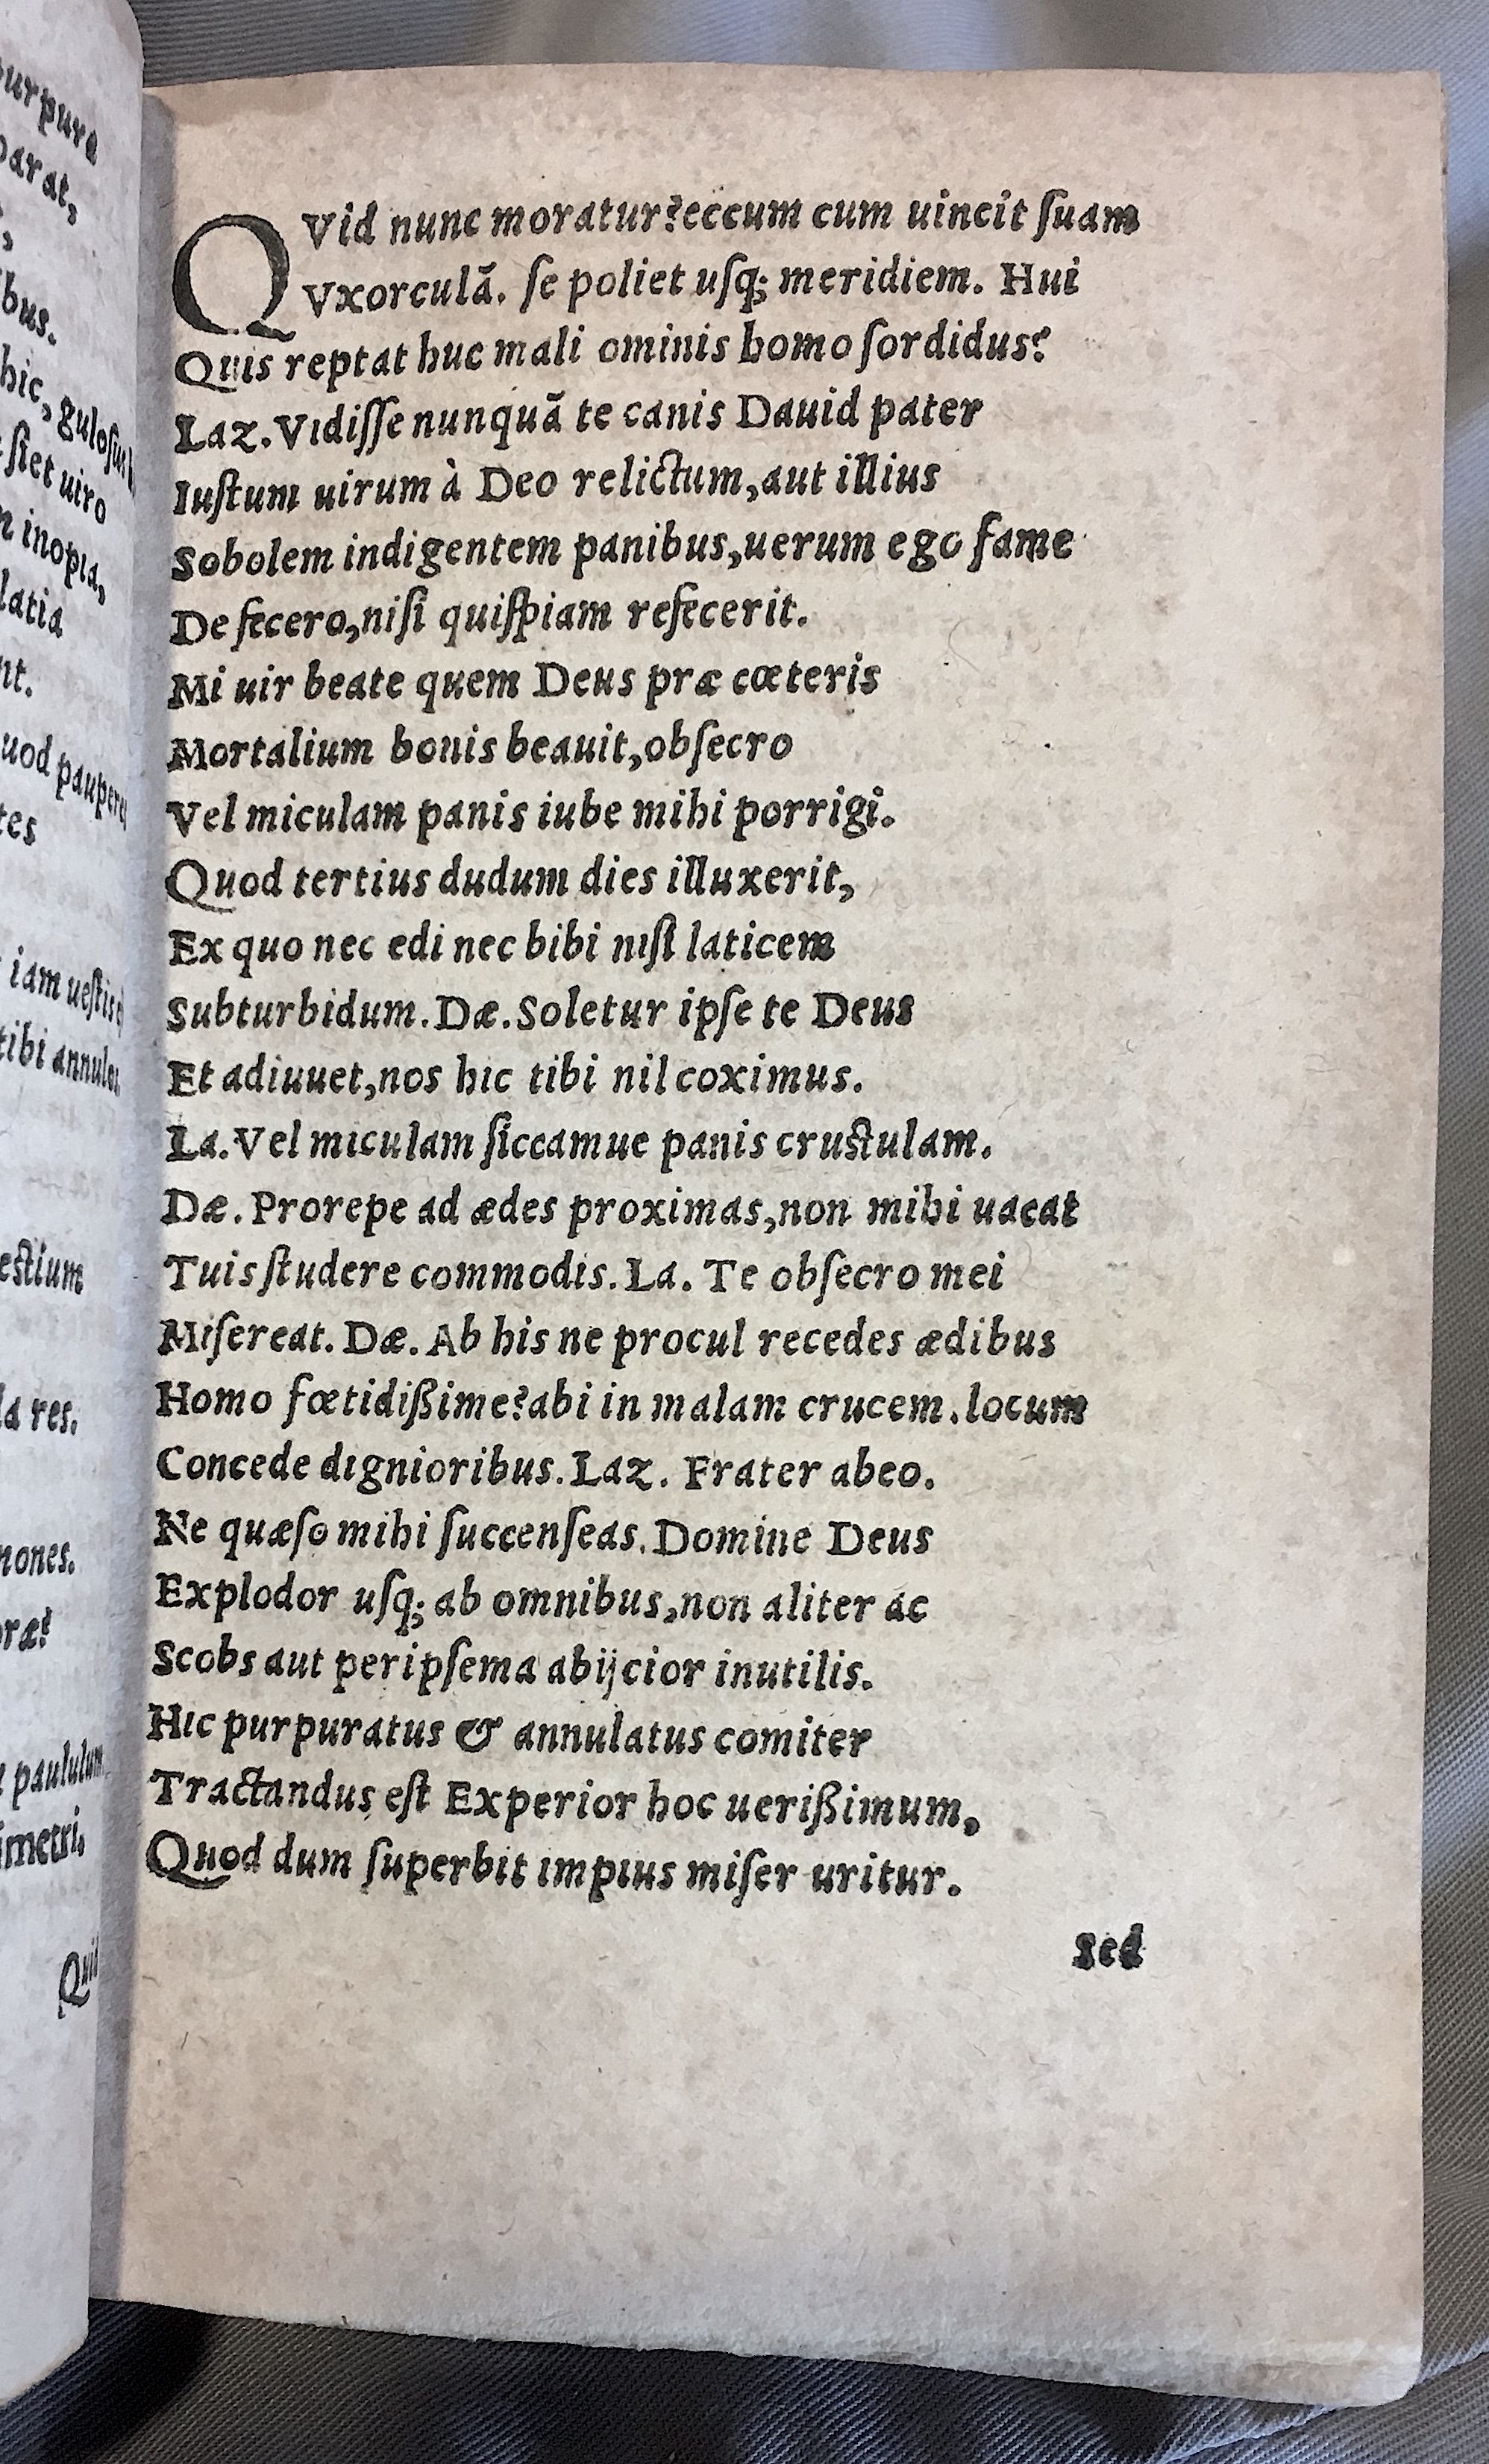 purpura
parat,
bus.
hic, gulosus
stet uiro
inopia,
latia
nt.
uod pauperes
tes
iam uestis
tibi annulos
estium
la res.
mones.
oræ?
paululum
imetri,
Quid
QVid nunc moratur?eccum cum uincit ſuam
Vxorculā. ſe poliet uſq; meridiem. Hui
Quis reptat huc mali ominis homo ſordidus?
Laz.Vidiſſe nunquā te canis Dauid pater
Iuſtum uirum à Deo relictum,aut illius
Sobolem indigentem panibus,uerum ego fame
Defecero,niſi quiſpiam refecerit.
Mi uir beate quem Deus præ cœteris
Mortalium bonis beauit,obſecro
Vel miculam panis iube mihi porrigi.
Quod tertius dudum dies illuxerit,
Ex quo nec edi nec bibi niſi laticem
Subturbidum.Dæ.Soletur ipſe te Deus
Et adiuuet,nos hic tibi nil coximus.
La.Vel miculam ſiccamue panis cruſtulam.
Dæ.Prorepe ad ædes proximas,non mihi uacat
Tuis ſtudere commodis.La. Te obſecro mei
Miſereat. Dæ.Ab his ne procul recedes ædibus
Homo fœtidißime?abi in malam crucem.locum
Concede dignioribus.Laz. Frater abeo.
Ne quæſo mihi ſuccenſeas.Domine Deus
Explodor uſq; ab omnibus,non aliter ac
Scobs aut peripſema abijcior inutilis.
Hic purpuratus & annulatus comiter
Tractandus eſt Experior hoc uerißimum,
Quod dum ſuperbit impius miſer uritur.
Sed